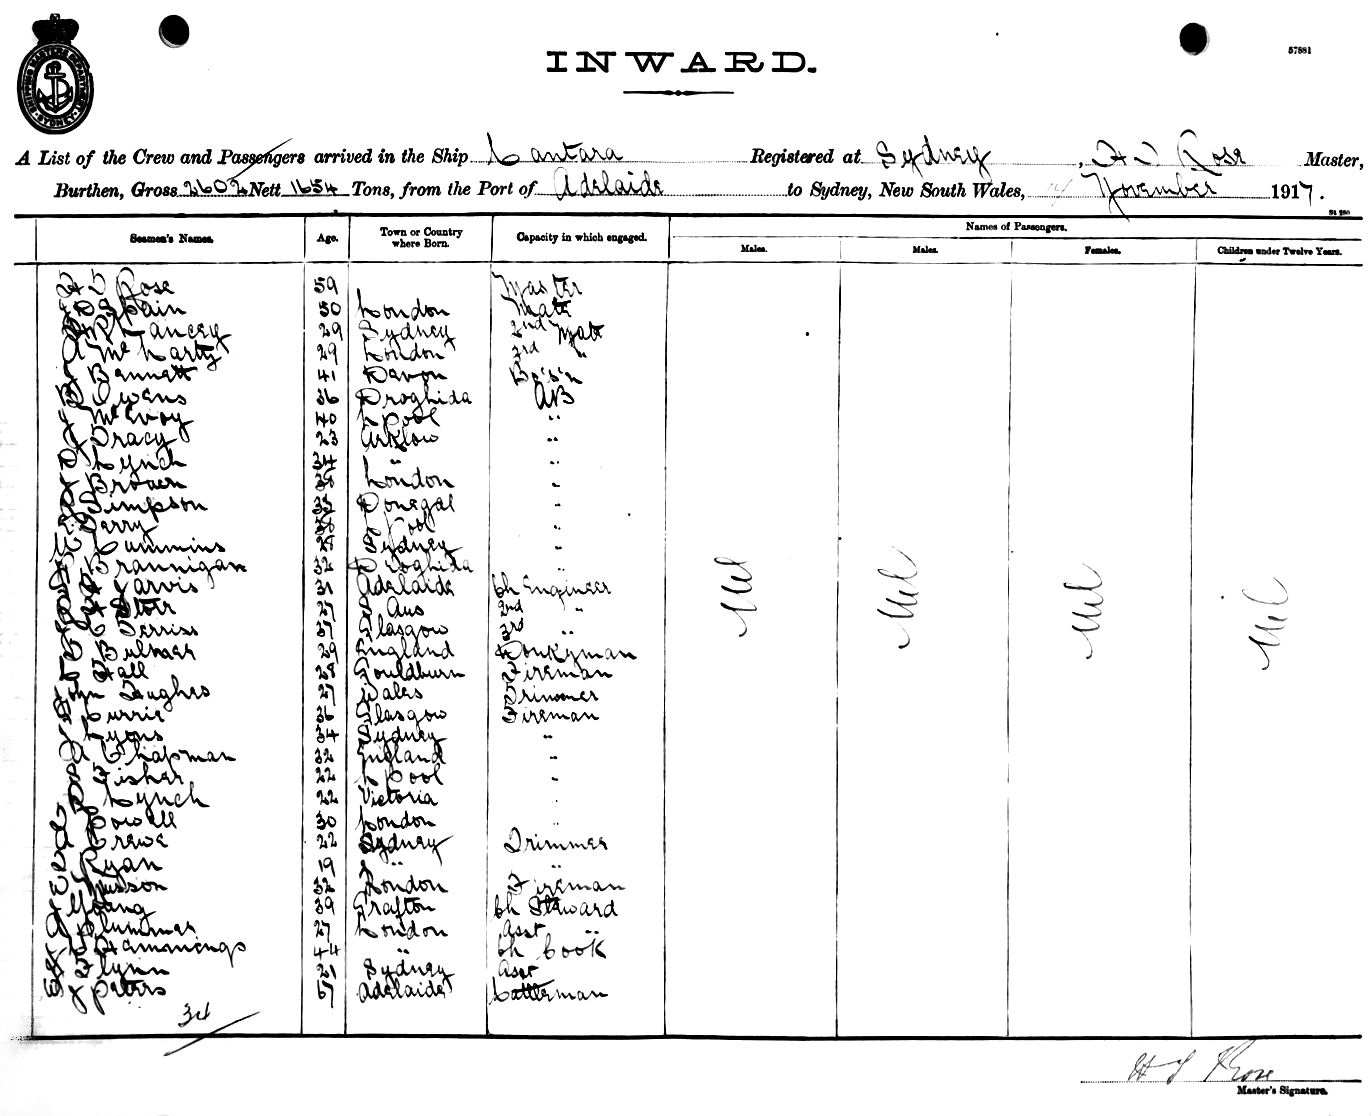 SHIPPING MASTERS DEPARTMENT SYDNEY
INWARD.
57881
A List of the Crew and Passengers arrived in the Ship Cantara Registered at Sydney, H T Rose Master,
Burthen, Gross 2602 Nett 1654 Tons, from the Port of Adelaide to Sydney, New South Wales, 14 November 1917.
Seamen's Names. Age. Town or Country where Born. Capacity in which engaged. Names of Passengers.
Males. Males. Females. Children under Twelve Years.
H T Rose 59 Master
Spain 50 London Mate
Lancey 29 Sydney 2nd Mate
McCarty 29 London 3rd "
Bennett 41 Devon Bo's'n
Owens 36 Droghida AB
McEvoy 40 L'Pool "
Tracy 23 Arklow "
Lynch 34 " "
Brown London "
Simpson Donegal "
Berry L'Pool "
Cummins 28 Sydney "
Brannigan 32 Droghida "
Jarvis 31 Adelaide Ch Engineer
27 S Aus 2nd "
Ferriss 37 Glasgow 3rd "
Bulmer 29 England Donkyman
Hall 28 Gouldburn Fireman
Hughes 27 Wales Trimmer
Currie 36 Glasgow Fireman
Lyons 34 Sydney "
Chapman 32 England "
Fisher 22 L'Pool "
Lynch 22 Victoria "
Cowell 30 London "
Crewe 22 Sydney Trimmer
Ryan 19 " "
Musson 32 London Fireman
Young 39 Grafton Ch Steward
Plummer 27 London Asst "
Hammings 44 " Ch Cook
Flynn 21 Sydney Asst
Peters 67 Adelaide Cattleman
Nil Nil Nil Nil
34
H T Rose
Master's Signature.